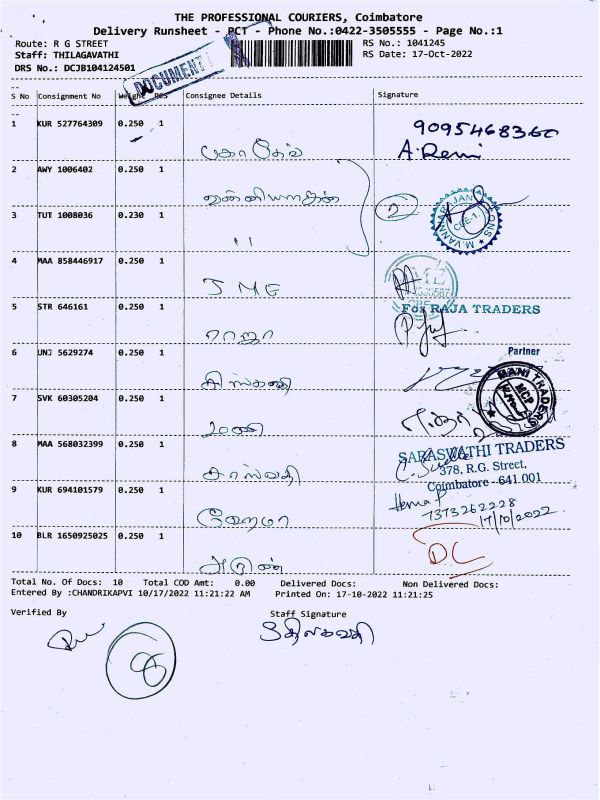 THE PROFESSIONAL COURIERS, Coimbatore
Delivery Runsheet - PCT - Phone No.:0422-3505555 - Page No.:1
Route: R G STREET
RS No.: 1041245
Staff: THILAGAVATHI
RS Date: 17-Oct-2022
DRS No.: DCJB104124501
DOCUMENT
S No Consignment No Weight PCS Consignee Details Signature
1 KUR 527764309 0.250 1
9095468360
A.Remi
2 AWY 1006402 0.250 1
2
3 TUT 1008036 0.230 1
"
4 MAA 858446917 0.250 1
JME
5 STR 646161 0.250 1
For RAJA TRADERS
ராஜா
6 UNJ 5629274 0.250 1
Partner
MANI TRADERS
7 SVK 60305204 0.250 1
மணி
8 MAA 568032399 0.250 1
SARASWATHI TRADERS
378, R.G. Street,
Coimbatore - 641 001
9 KUR 694101579 0.250 1
Hema P
7373262228
17/10/2022
ஹேமா
10 BLR 1650925025 0.250 1
DC
அருண்
Total No. Of Docs: 10 Total COD Amt: 0.00 Delivered Docs: Non Delivered Docs:
Entered By :CHANDRIKAPVI 10/17/2022 11:21:22 AM Printed On: 17-10-2022 11:21:25
Verified By
Staff Signature
8